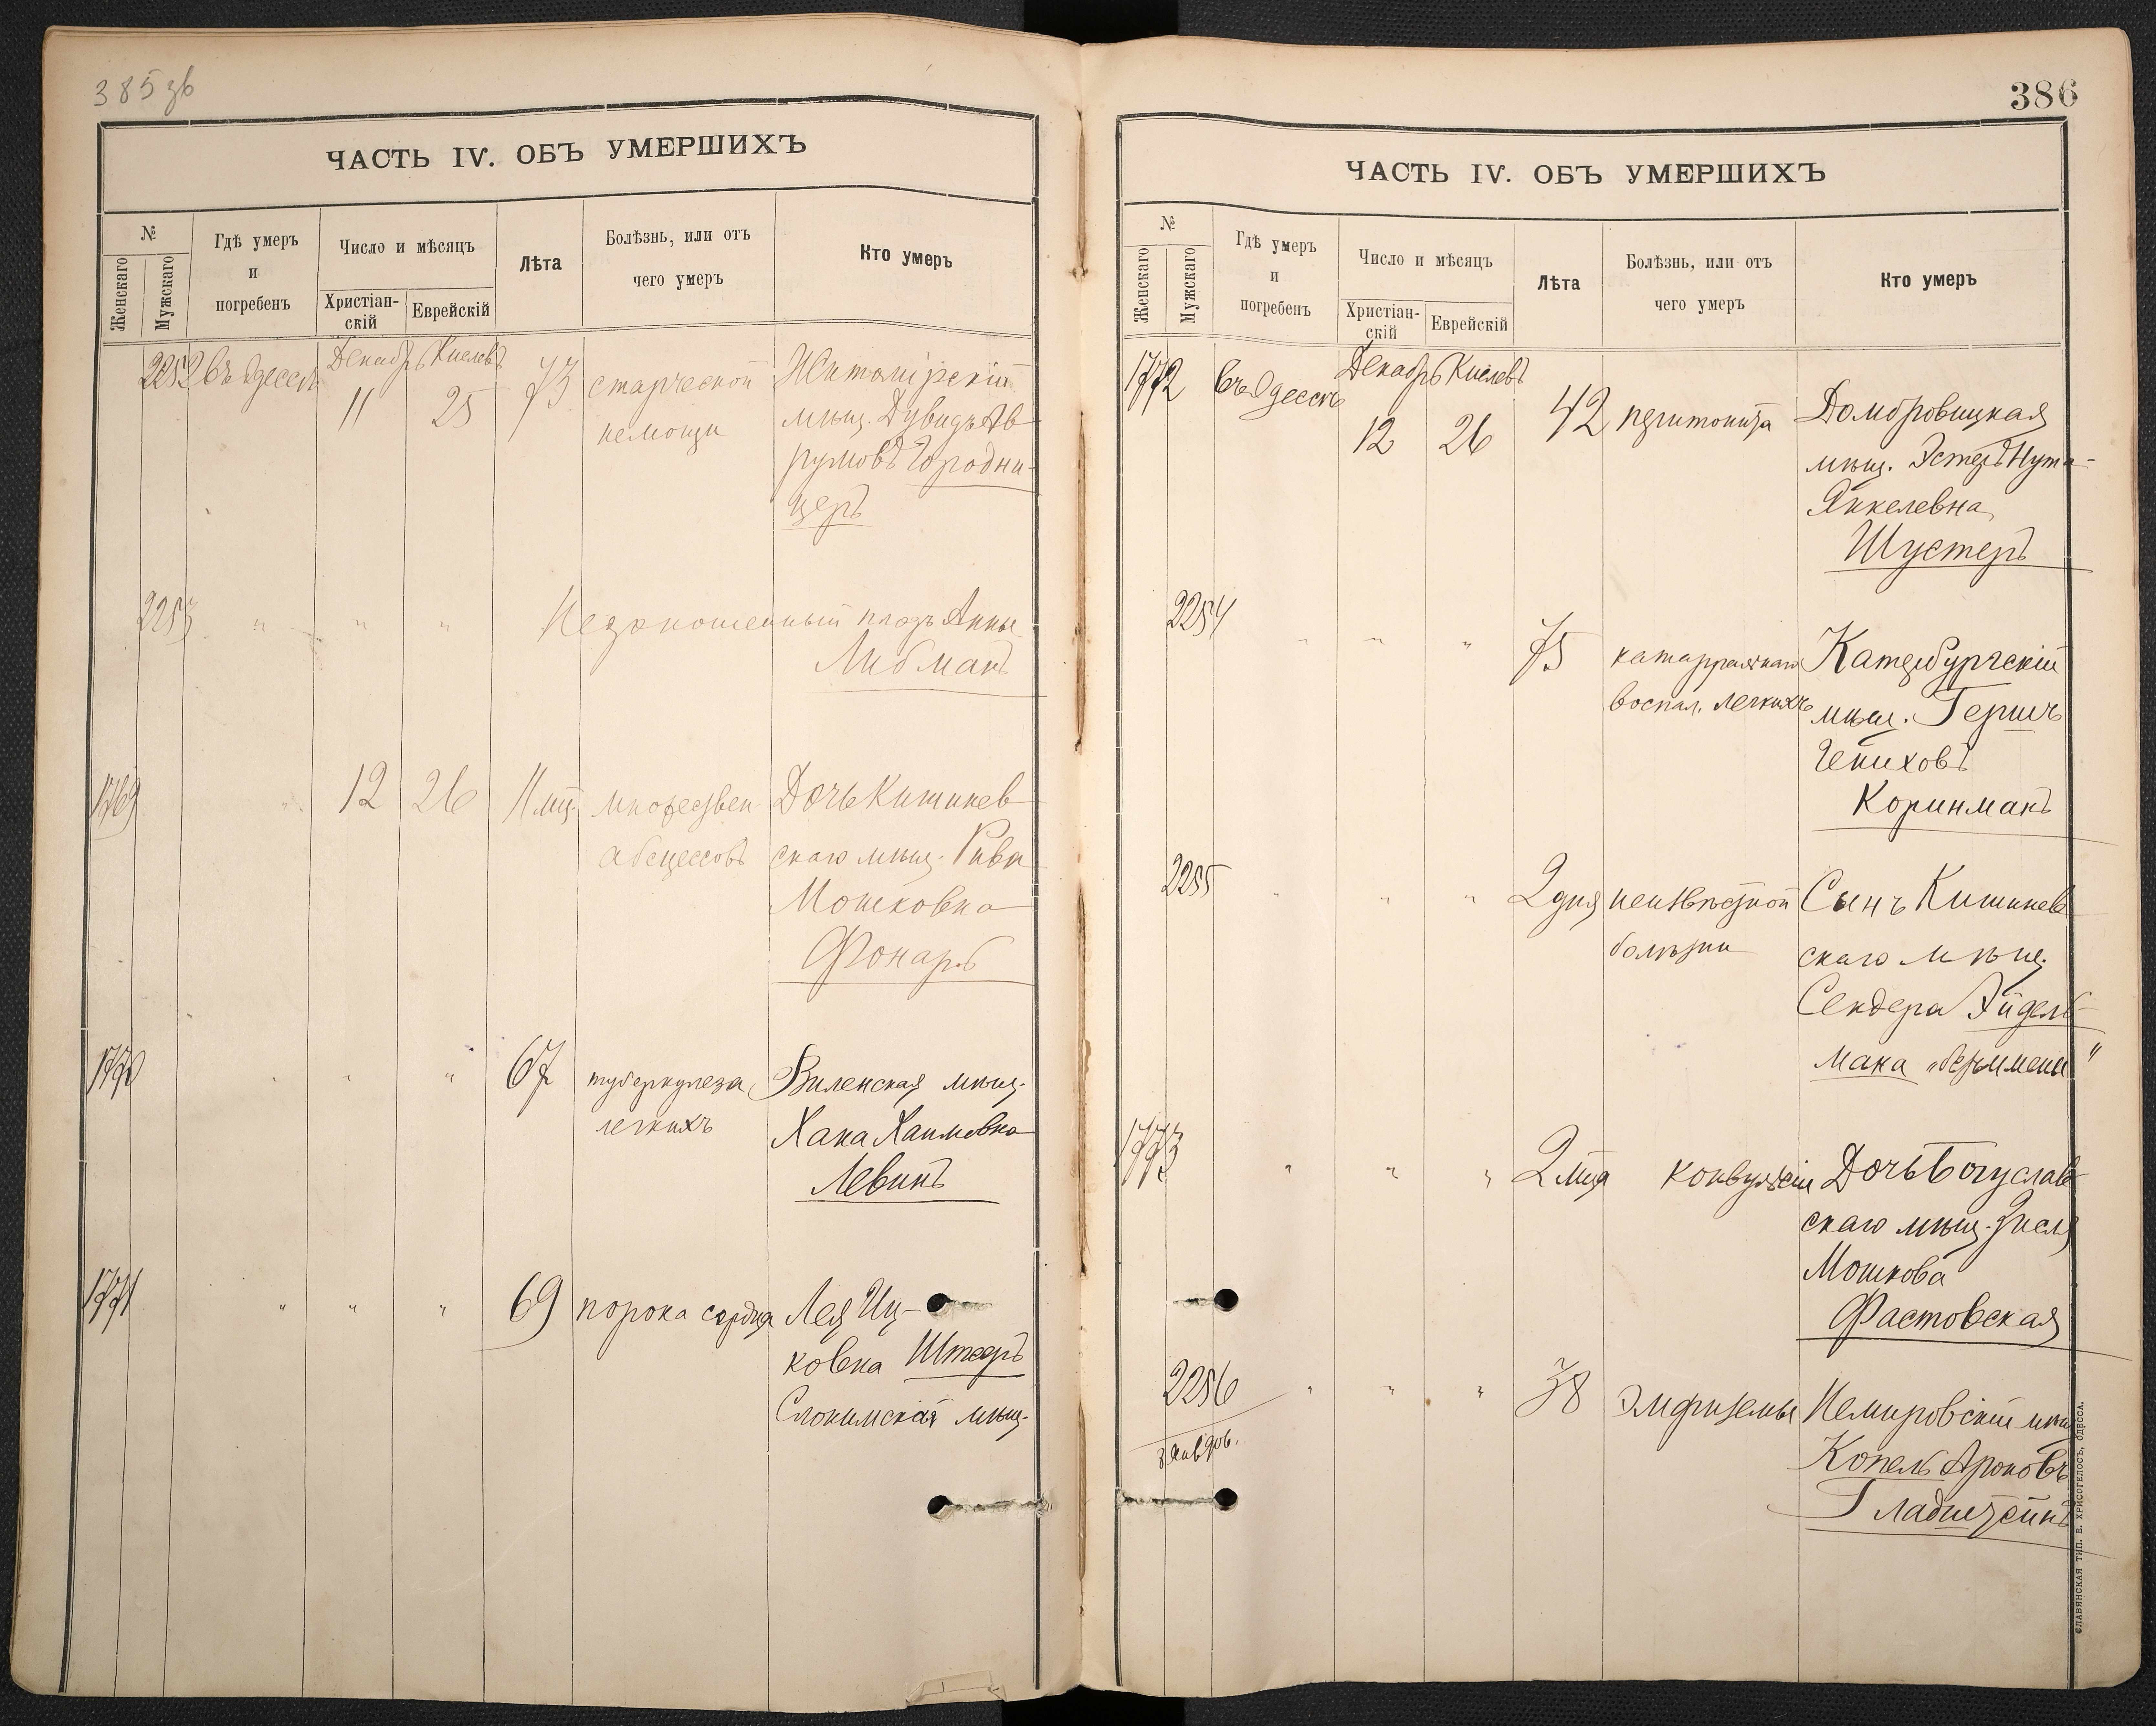 385 зв
ЧАСТЬ IV. ОБЪ УМЕРШИХЪ
№
Женскаго
Мужскаго
Гдѣ умеръ
и
погребенъ
Число и мѣсяцъ
Христіан-
скій
Еврейскій
Лѣта
Болѣзнь, или отъ
чего умеръ
Кто умеръ
2252 въ Одессѣ Декабрь Кислевъ 73 старческой Житомірскій
11 25 немощи мѣщ. Дувидъ Ав
румовъ Городни-
церъ
2253 " " " Недоношенный плодъ Анны
Либманъ
1769 " 12 26 11 мц. множествен Дочь Кишинев
абсцессовъ скаго мѣщ. Рива
Мошковна
Фонарь
1770 " " " 67 туберкулеза Виленская мѣщ.
легкихъ Хана Хаимовна
Левинъ
1771 " " " 69 порока сердца Лея Иц-
ковна Штееръ
Слонимская мѣщ.
386
ЧАСТЬ IV. ОБЪ УМЕРШИХЪ
№
Женскаго
Мужскаго
Гдѣ умеръ
и
погребенъ
Число и мѣсяцъ
Христіан-
скій
Еврейскій
Лѣта
Болѣзнь, или отъ
чего умеръ
Кто умеръ
1772 въ Одессѣ Декабрь Кислевъ
12 26 42 перитонита Домбровицкая
мѣщ. Эстеръ Нута-
Янкелевна
Шустеръ
2254 " " " 75 катарральнаго Катербургскій
воспал. легкихъ мѣщ. Гершъ
Коринманъ
2255 " " " 2 дня неизвѣстной Сынъ Кишинев
болѣзни скаго мѣщ.
Сендера Эйдель-
мана „безыменный"
1773 " " " 2 мца конвульсіи Дочь Богуслав
скаго мѣщ. Зисля
Мошкова
Фастовская
2256 " " " 38 эмфиземы Немировскій мѣщ
Копель Ароновъ
Гладштейнъ
СЛАВЯНСКАЯ ТИП. Е. ХРИСОГЕЛОСЪ, ОДЕССА.